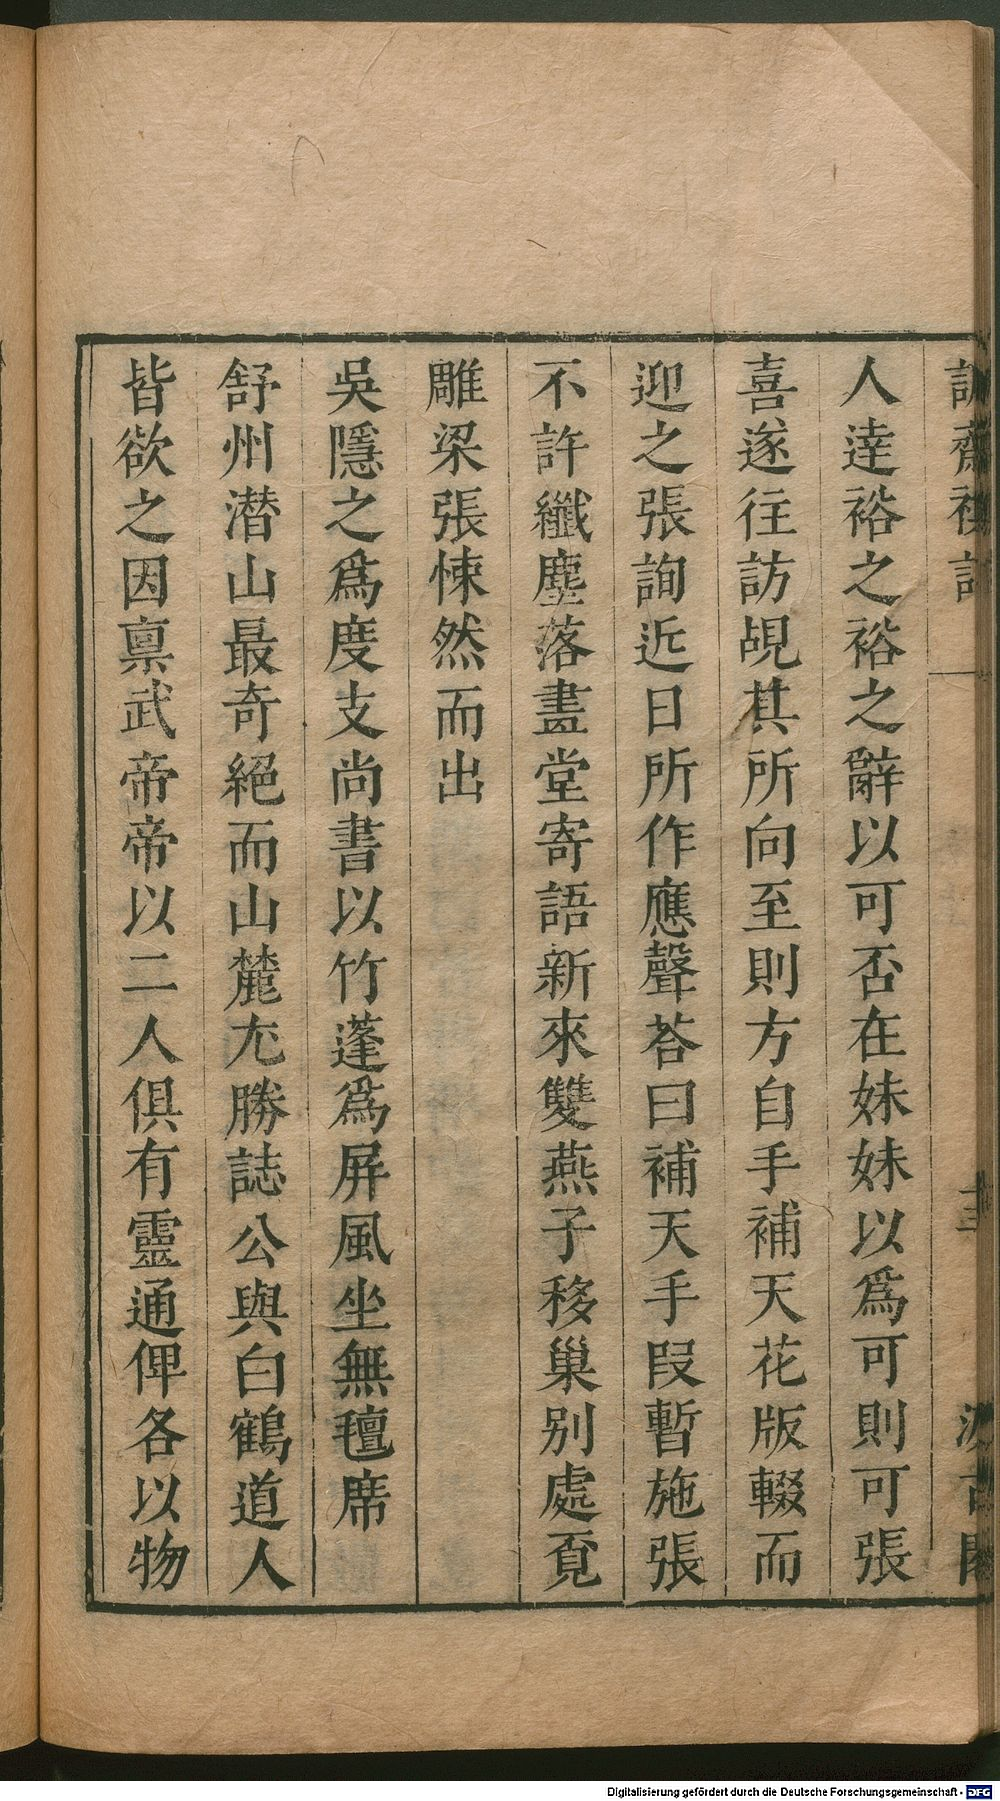 齋
人達裕之裕之辭以可否在妹妹以爲可則可張
喜遂往訪覘其所向至則方自手補天花版輟而
迎之張詢近日所作應聲荅曰補天手段暫施張
不許纖塵落畵堂寄語新來雙燕子移巢別處覔
雕梁張悚然而出
吳隱之爲度支尚書以竹蓬爲屏風坐無氊席
舒州潜山最奇絕而山麓尢勝誌公與白鶴道人
皆欲之因稟武帝帝以二人俱有靈通俾各以物
Digitalisierung gefördert durch die Deutsche Forschungsgemeinschaft - DFG